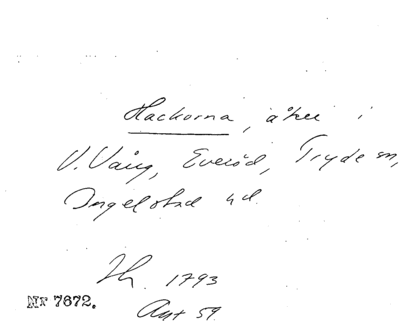 Hackorna, åker i
V. Vång, Everöd, Tryde sn,
Ingelstad hd.
Lh. 1793
Akt 59.
Nr 7672.